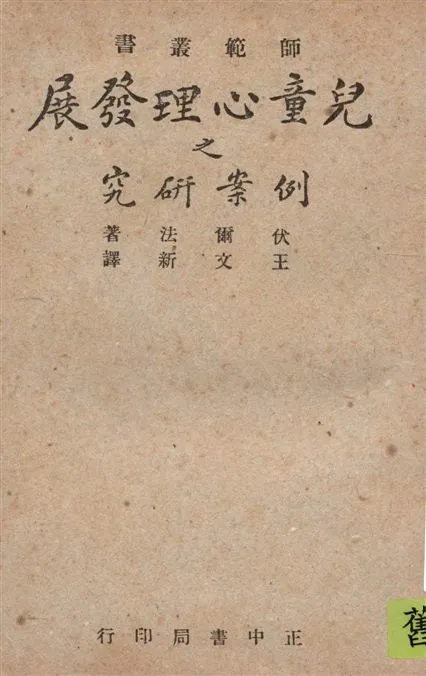 師範叢書
兒童心理發展
之
例案研究
伏爾法著
王文新譯
正中書局印行
舊